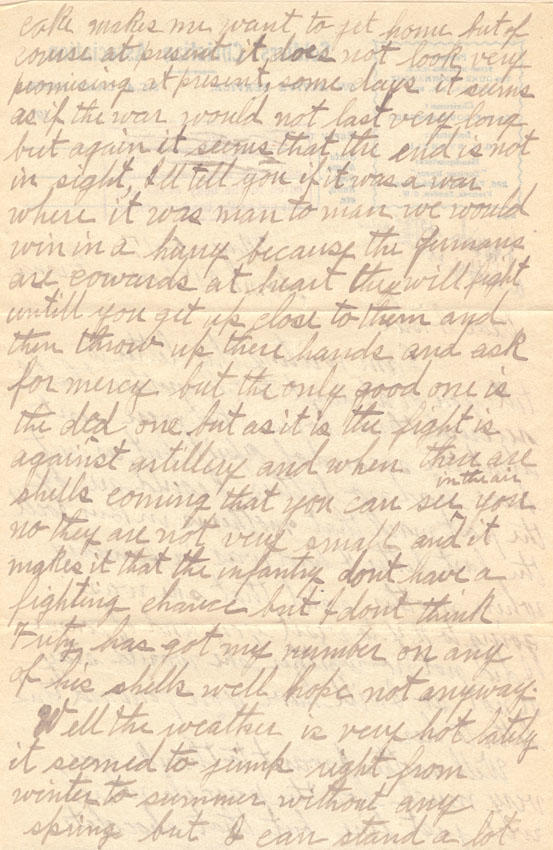 cake makes me want to get home but of
course at present it does not look very
promising at present, some days it seems
as if the war would not last very long
but again it seems that the end is not
in sight, Ill tell you if it was a war
where it was man to man we would
win in a hurry because the Germans
are cowards at heart they will fight
untill you get up close to them and
then throw up there hands and ask
for mercy but the only good one is
the ded one but as it is the fight is
against artillery and when there are
shells coming that you can see in the air you
no they are not very small and it
makes it that the infantry dont have a
fighting chance but I dont think
Fritz has got my number on any
of his shells well hope not anyway.
Well the weather is very hot lately
it seemed to jump right from
winter to summer without any
spring but I can stand a lot